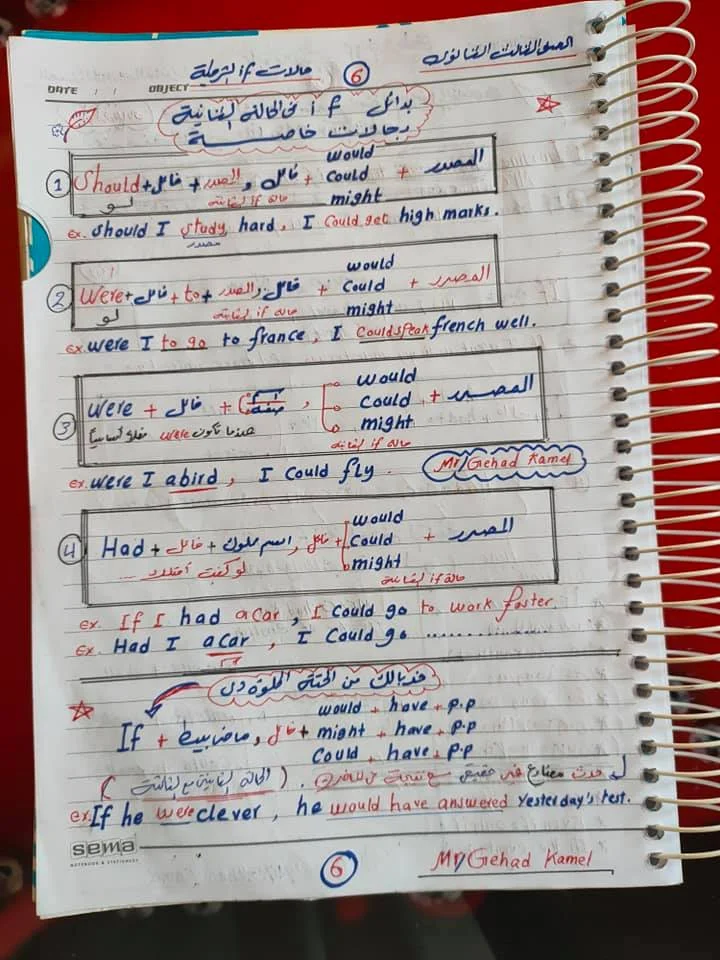 الصف الثالث الثانوى
6
حالات if الشرطية
DATE / / OBJECT
بدائل if فى الحالة الثانية
وحالات خاصة
1 Should + فاعل + المصدر , فاعل + would could might + المصدر
لو حالة if الثانية
Ex. should I study hard, I could get high marks.
مصدر
2 Were + فاعل + to + المصدر , فاعل + would could might + المصدر
لو حالة if الثانية
Ex. were I to go to france, I could speak french well.
3 were + فاعل + اسم صفة , would could might + المصدر
عندما تكون were فعل أساسياً حالة if ثانية
Ex. were I a bird, I could fly. Mr/Gehad Kamel
4 Had + فاعل + اسم مملوك , فاعل + would could might + المصدر
لو كنت أمتلك ... حالة if ثانية
Ex. If I had a car, I could go to work faster.
Ex. Had I a car, I could go ..............
خد بالك من الحتة الحلوة دى
If + ماضى بسيط , فاعل + would + have + p.p
might + have + p.p
could + have + p.p
حدث مضارع غير حقيقى مع نتيجة فى الماضى. (الحالة الثانية مع الثالثة)
Ex. If he were clever, he would have answered yesterday's test.
sema
NOTEBOOK & STATIONERY
6
Mr/Gehad Kamel